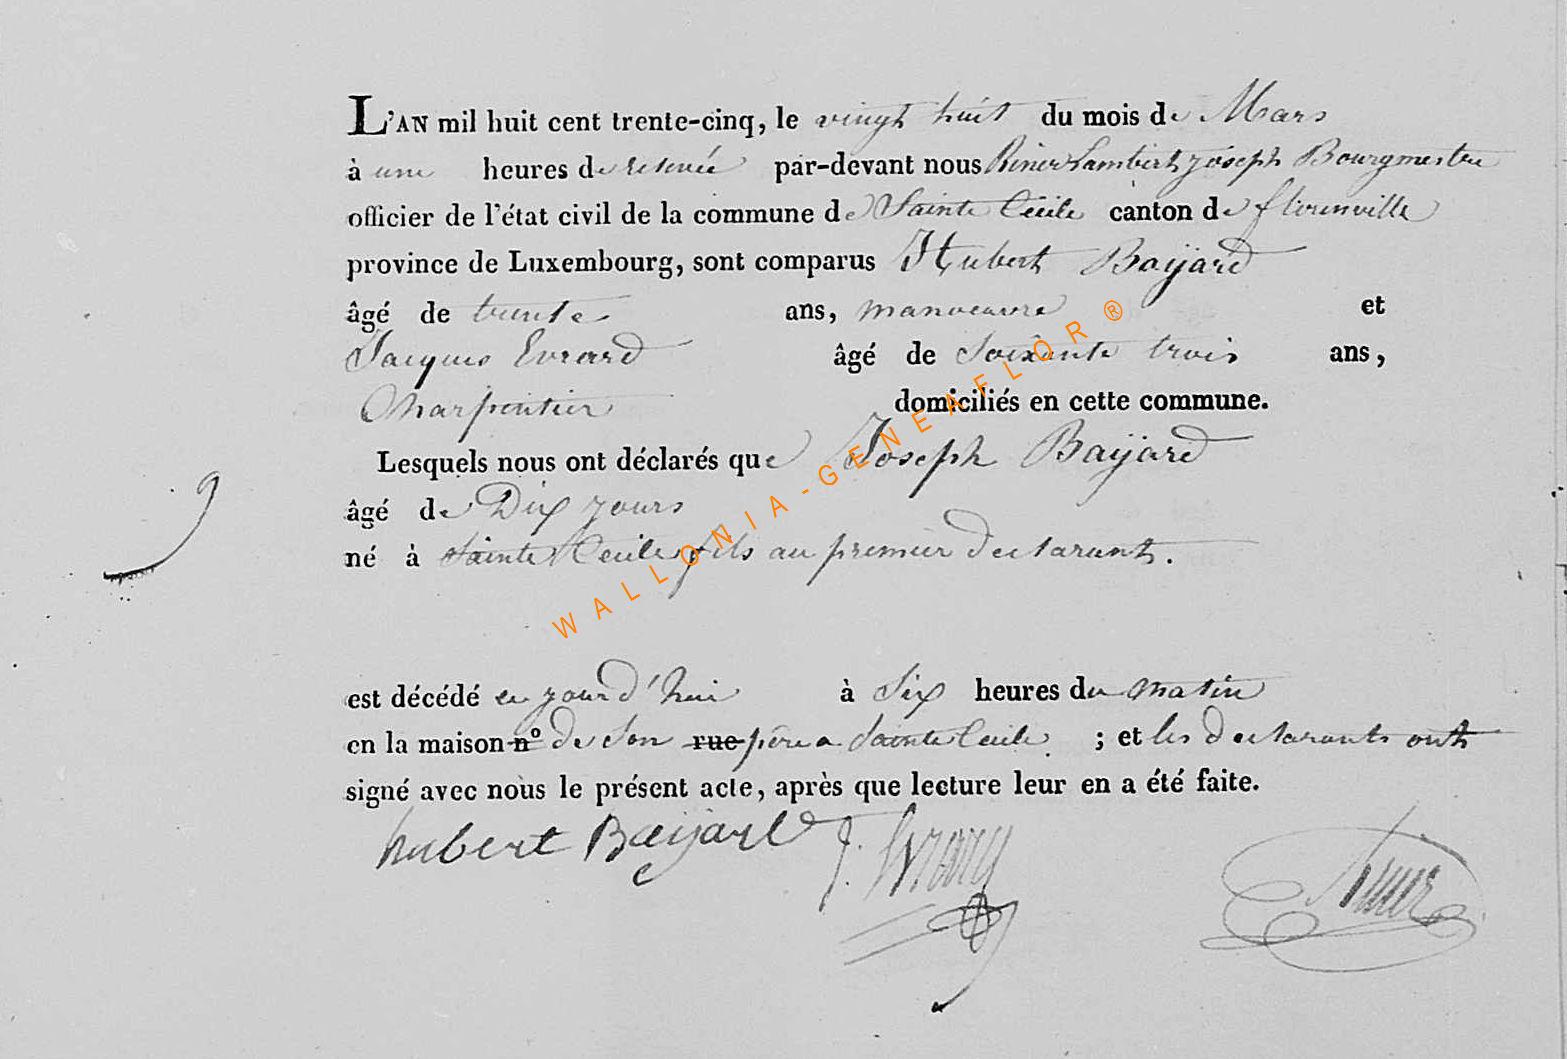 L'AN mil huit cent trente-cinq, le vingt huit du mois de Mars
à une heures de relevée par-devant nous Lambert joseph Bourgmestre
officier de l'état civil de la commune de Sainte Cécile canton de florenville
province de Luxembourg, sont comparus Hubert Baijard
âgé de trente ans, manoeuvre et
Jacques Evrard âgé de Soixante trois ans,
Charpentier domiciliés en cette commune.
Lesquels nous ont déclarés que Joseph Baijard
âgé de Dix jours
né à Sainte Cecile fils au premier declarant.
est décédé ce jourd'hui à Six heures du matin
en la maison n° de Son rue père a Sainte Cecile ; et les declarants ont
signé avec nous le présent acte, après que lecture leur en a été faite.
hubert Baijard J. Evrard
WALLONIA-GENEAFLOR®